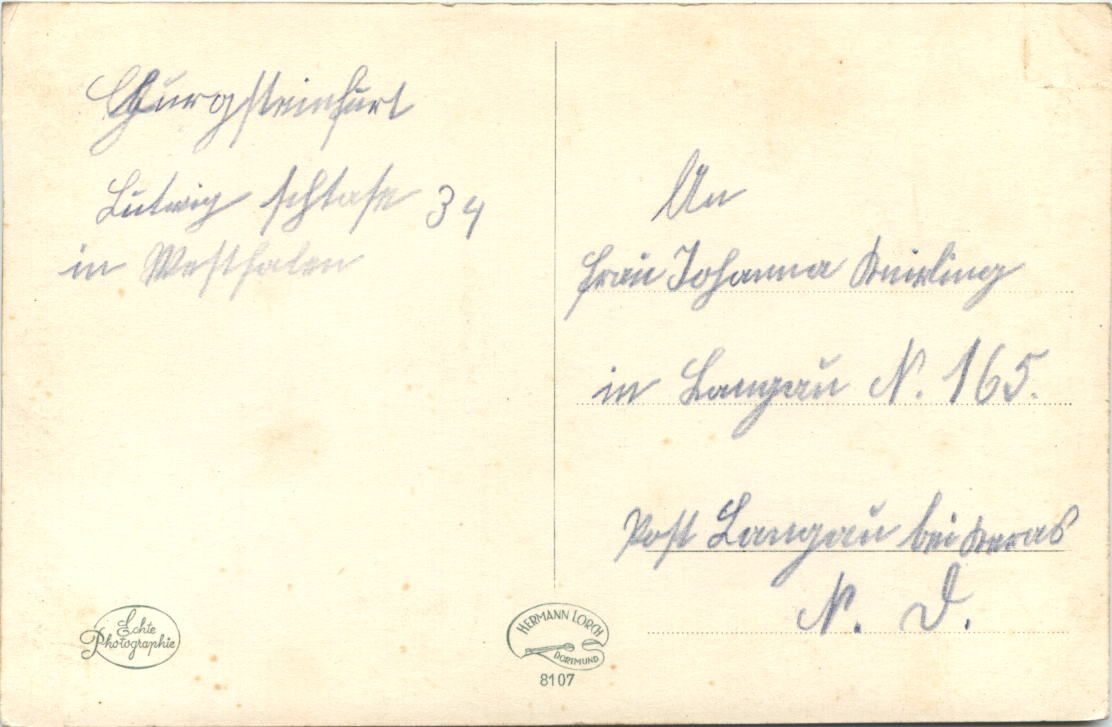 Burgsteinfurt
Lutwig schtase 34
in Westfalen
An
Frau Johanna
in Langau N. 165.
Post Langau bei
N. D.
Echte
Photographie
HERMANN LORCH
DORTMUND
8107